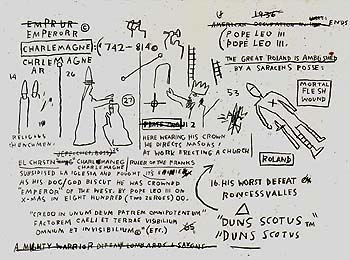 EMPRUR
EMPERORR ©
CHARLEMAGNE: (742-814©
CHRLEMAGNE
AR
14
26
27
RELIGEOUS
PHENCUMEN:
HERE WEARING HIS CROWN
HE DIRECTS MASONS:
AT WORK ERECTING A CHURCH
EL CHRSTN "CHARLEMANEG RULER OF THE FRANKS
SUBSIDISED LA IGLESIA AND FOUGHT
AS HIS/GOD BISCUT HE WAS CROWNED
"EMPEROR" OF THE WEST. BY POPE LEO III ON
X-MAS IN EIGHT HUNDRED (TWO ZEROES) OO.
"CREDO IN UNUM DEUM PATREM OMNIPOTENTUM
FACTOREM CAELI ET TERRAE VISIBILIUM
OMNIUM ET INVISIBILIUM© (ETC.)
A MIGHTY WARRIOR LOMBARDS & SAXONS
1936
AMERICAN OCCUPATION ENDS
POPE LEO III
POPE LEO III.
THE GREAT ROLAND IS AMBUSHED
BY A SARACENS POSSE:
53
MORTAL
FLESH
WOUND
ROLAND
16. HIS WORST DEFEAT
ROINCESVALLES
"DUNS SCOTUS"™
"DUNS SCOTUS